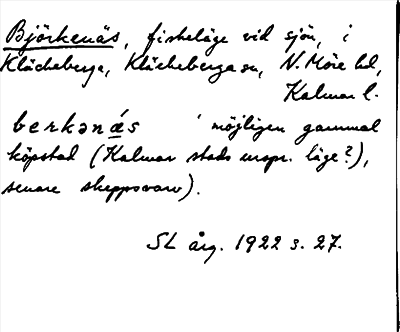 Björkenäs, fiskeläge vid sjön, i
Kläckeberga, Kläckeberga sn, N. Möre hd,
Kalmar l.
berkənä́s möjligen gammal
köpstad (Kalmar stads urspr. läge?),
senare skeppsvarv).
SL årg. 1922 s. 27.